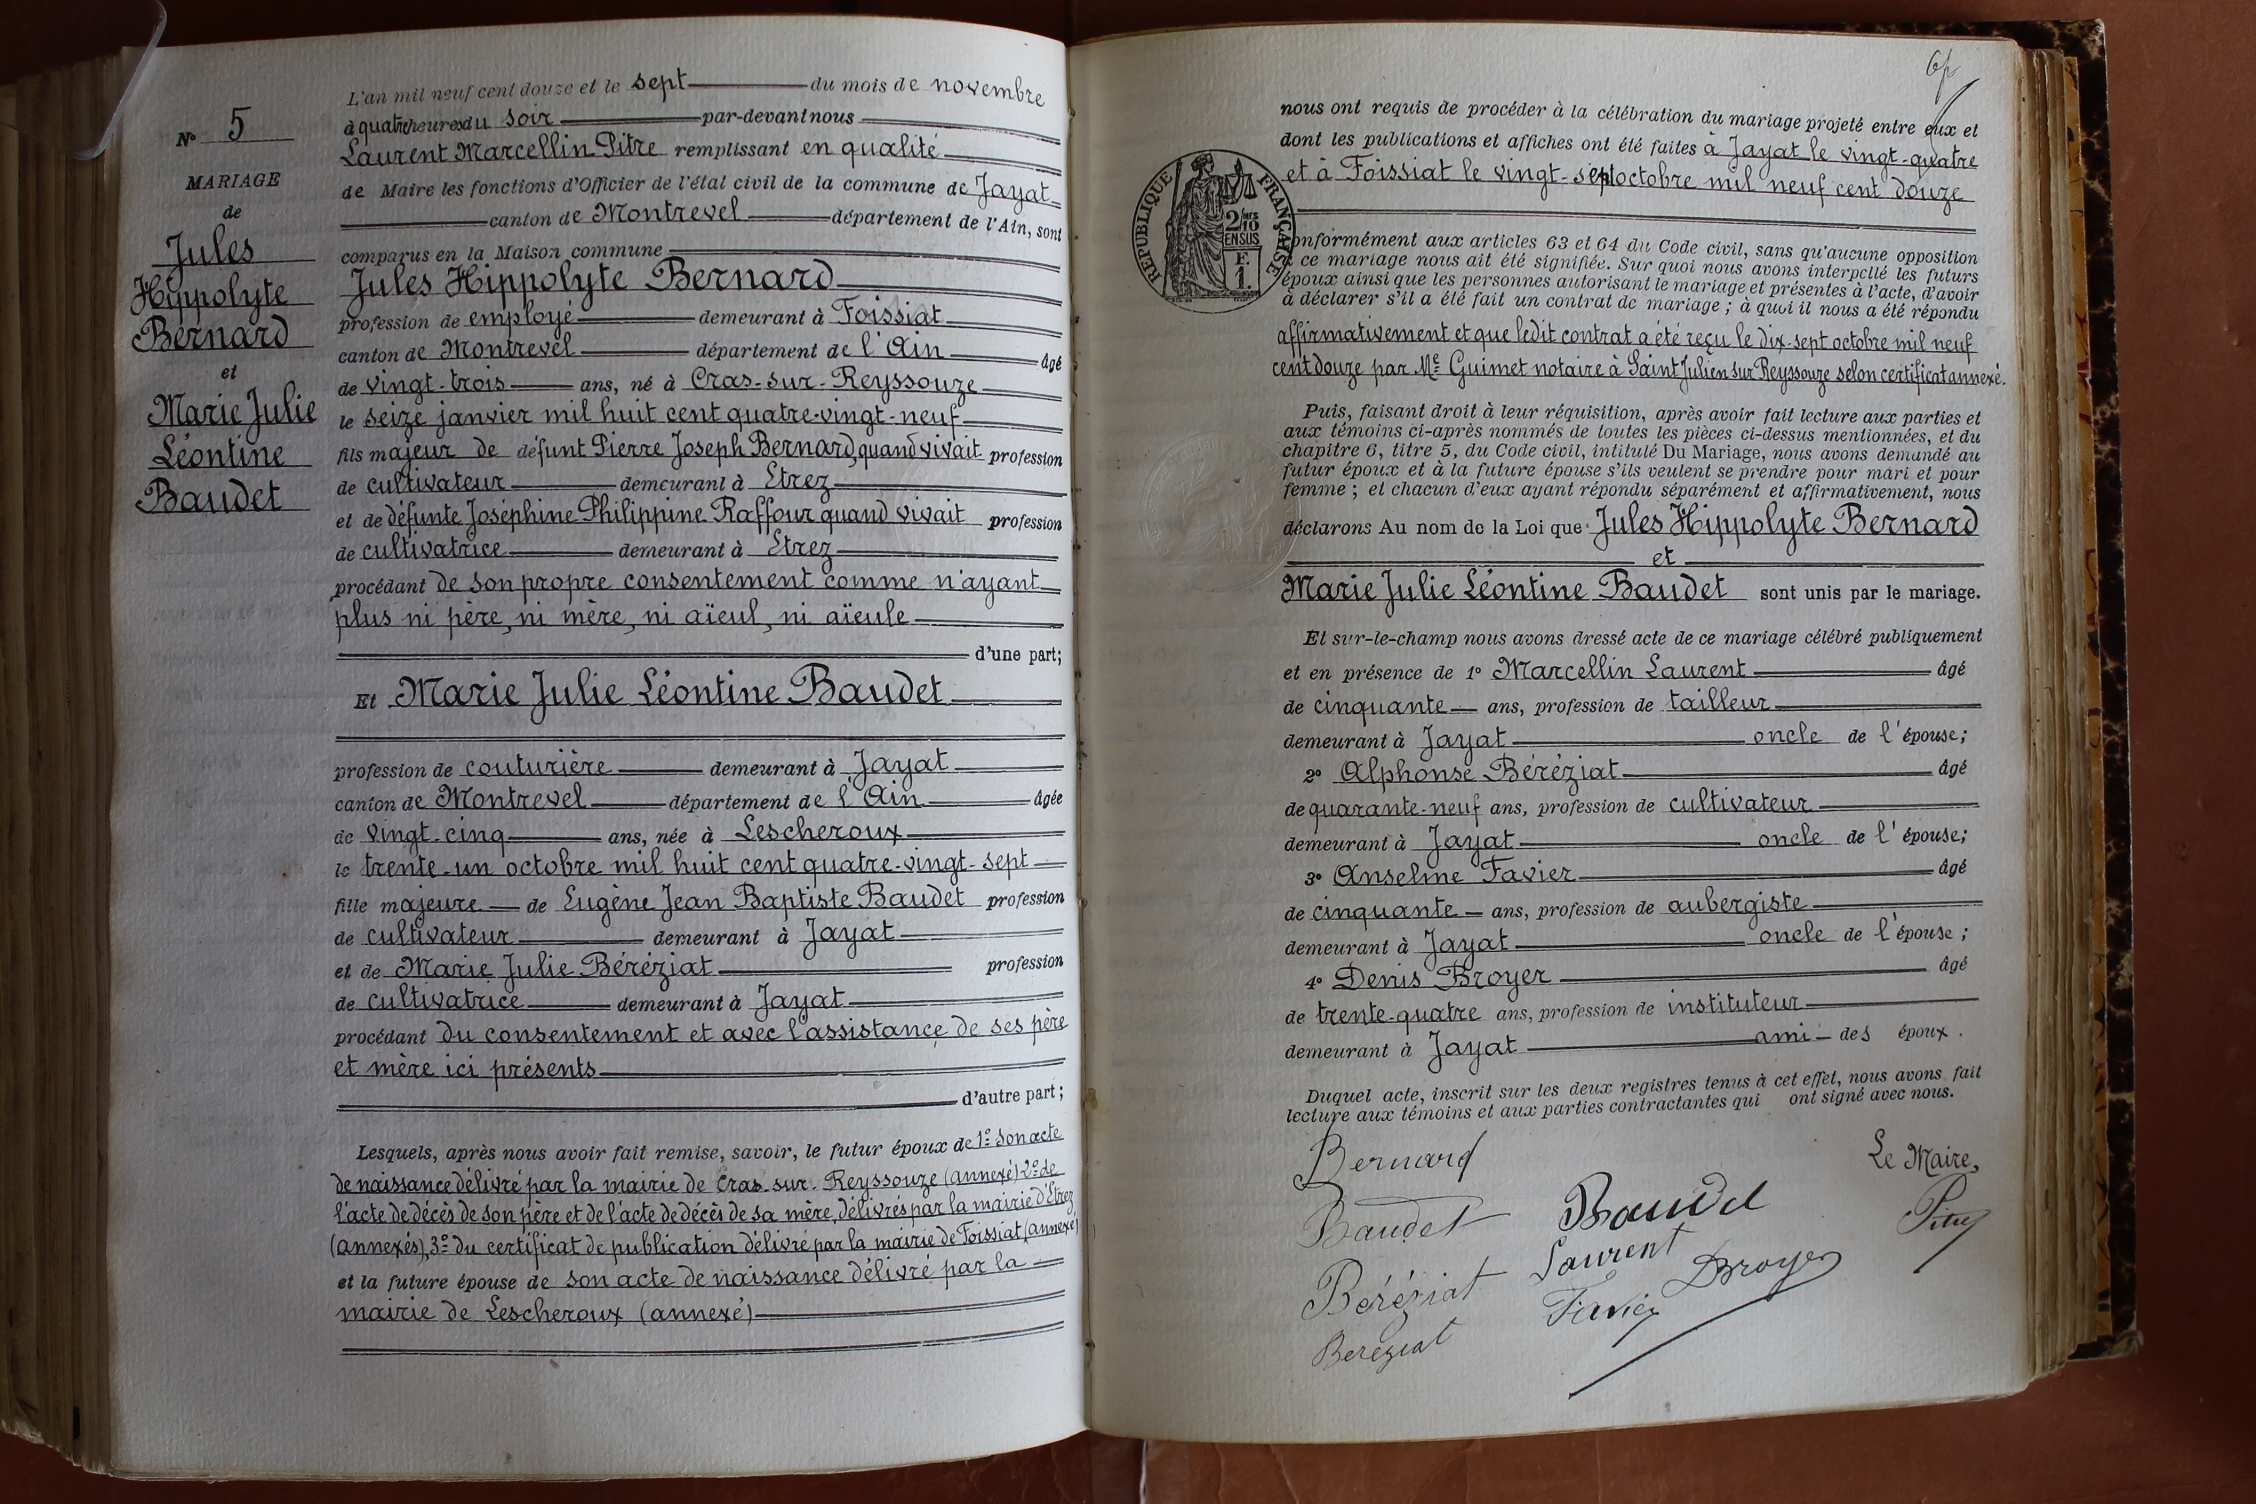 N° 5
MARIAGE
de
Jules
Hippolyte
Bernard
et
Marie Julie
Léontine
Baudet
L'an mil neuf cent douze et le sept du mois de novembre
à quatre heures du soir par-devant nous
Laurent Marcellin Pitre remplissant en qualité
de Maire les fonctions d'Officier de l'état civil de la commune de Jayat
canton de Montrevel département de l'Ain, sont
comparus en la Maison commune
Jules Hippolyte Bernard
profession de employé demeurant à Foissiat
canton de Montrevel département de l'Ain âgé
de vingt-trois ans, né à Cras-sur-Reyssouze
le seize janvier mil huit cent quatre-vingt-neuf
fils majeur de défunt Pierre Joseph Bernard, quand vivait profession
de cultivateur demeurant à Etrez
et de défunte Joséphine Philippine Raffour quand vivait profession
de cultivatrice demeurant à Etrez
procédant de son propre consentement comme n'ayant
plus ni père, ni mère, ni aïeul, ni aïeule
d'une part;
Et Marie Julie Léontine Baudet
profession de couturière demeurant à Jayat
canton de Montrevel département de l'Ain âgée
de vingt-cinq ans, née à Lescheroux
le trente-un octobre mil huit cent quatre-vingt-sept
fille majeure de Eugène Jean Baptiste Baudet profession
de cultivateur demeurant à Jayat
et de Marie Julie Béréziat profession
de cultivatrice demeurant à Jayat
procédant du consentement et avec l'assistance de ses père
et mère ici présents
d'autre part;
Lesquels, après nous avoir fait remise, savoir, le futur époux de 1° son acte
de naissance délivré par la mairie de Cras-sur-Reyssouze (annexé) 2° de
l'acte de décès de son père et de l'acte de décès de sa mère, délivrés par la mairie d'Etrez
(annexés), 3° du certificat de publication délivré par la mairie de Foissiat (annexé)
et la future épouse de son acte de naissance délivré par la
mairie de Lescheroux (annexé)
nous ont requis de procéder à la célébration du mariage projeté entre eux et
dont les publications et affiches ont été faites à Jayat le vingt-quatre
et à Foissiat le vingt-sept octobre mil neuf cent douze
RÉPUBLIQUE FRANÇAISE
2/10
EN SUS
F.
1.
onformément aux articles 63 et 64 du Code civil, sans qu'aucune opposition
ce mariage nous ait été signifiée. Sur quoi nous avons interpellé les futurs
époux ainsi que les personnes autorisant le mariage et présentes à l'acte, d'avoir
à déclarer s'il a été fait un contrat de mariage; à quoi il nous a été répondu
affirmativement et que ledit contrat a été reçu le dix-sept octobre mil neuf
cent douze par Me Guimet notaire à Saint Julien sur Reyssouze selon certificat annexé.
Puis, faisant droit à leur réquisition, après avoir fait lecture aux parties et
aux témoins ci-après nommés de toutes les pièces ci-dessus mentionnées, et du
chapitre 6, titre 5, du Code civil, intitulé Du Mariage, nous avons demandé au
futur époux et à la future épouse s'ils veulent se prendre pour mari et pour
femme; et chacun d'eux ayant répondu séparément et affirmativement, nous
déclarons Au nom de la Loi que Jules Hippolyte Bernard
et
Marie Julie Léontine Baudet sont unis par le mariage.
Et sur-le-champ nous avons dressé acte de ce mariage célébré publiquement
et en présence de 1° Marcellin Laurent âgé
de cinquante ans, profession de tailleur
demeurant à Jayat oncle de l'épouse;
2° Alphonse Béréziat âgé
de quarante-neuf ans, profession de cultivateur
demeurant à Jayat oncle de l'épouse;
3° Anselme Favier âgé
de cinquante ans, profession de aubergiste
demeurant à Jayat oncle de l'épouse;
4° Denis Broyer âgé
de trente-quatre ans, profession de instituteur
demeurant à Jayat ami des époux.
Duquel acte, inscrit sur les deux registres tenus à cet effet, nous avons fait
lecture aux témoins et aux parties contractantes qui ont signé avec nous.
Bernard
Le Maire,
Baudet Baudet
Pitre
Béréziat Laurent Broyer
Béréziat Favier